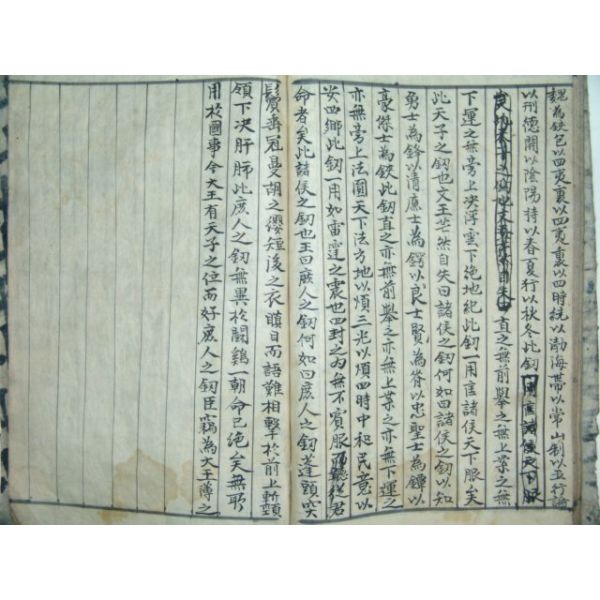 魏為鋏包以四夷裏以四夷裏以四時繞以渤海帶以常山制以五行論
以刑德開以陰陽持以春夏行以秋冬此釰一用匡諸侯天下服
直之無前舉之無上案之無
下運之無旁上決浮雲下絶地紀此釰一用匡諸侯天下服矣
此天子之釰也文王芒然自失曰諸侯之釰何如曰諸侯之釰以知
勇士為鋒以清廉士為鍔以良士賢為脊以忠聖士為鐔以
豪傑士為鋏此釰直之亦無前舉之亦無上案之亦無下運之
亦無旁上法圓天下法方地以順三光以順四時中和民意以
安四鄉此釰一用如雷霆之震也四封之內無不賓服而聽從君
命者矣此諸侯之釰也王曰庶人之釰何如曰庶人之釰蓬頭突
鬢垂冠曼胡之纓短後之衣瞋目而語難相擊於前上斬頸
領下決肝肺此庶人之釰無異於鬪鷄一朝命已絶矣無所
用於國事今大王有天子之位而好庶人之釰臣竊為大王薄之